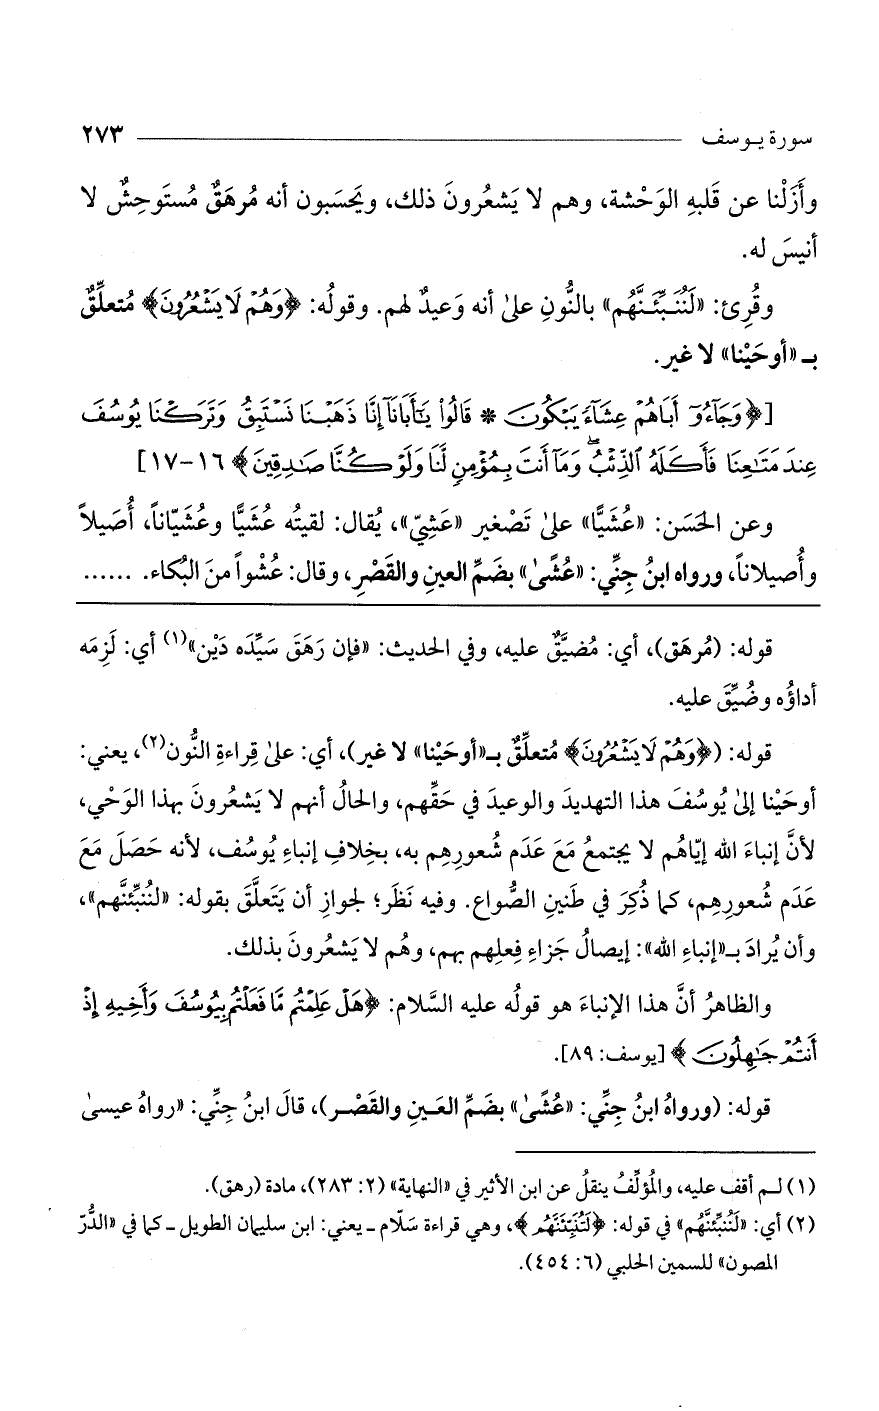 سورة يوسف ٢٧٣
وأَزَلْنا عن قَلبِهِ الوَحْشة، وهم لا يَشعُرونَ ذلك، ويَحسَبون أنه مُرهَقٌ مُستَوحِشٌ لا
أنيسَ له.
وقُرِئ: «لَنُنَبِّئَنَّهُم» بالنُّونِ على أنه وَعيدٌ لهم. وقولُه: ﴿وَهُمْ لَا يَشْعُرُونَ﴾ مُتعلِّقٌ
بـ «أوحَيْنا» لا غير.
[﴿وَجَآءُوٓ أَبَاهُمْ عِشَآءً يَبْكُونَ * قَالُوا۟ يَٰٓأَبَانَآ إِنَّا ذَهَبْنَا نَسْتَبِقُ وَتَرَكْنَا يُوسُفَ
عِندَ مَتَٰعِنَا فَأَكَلَهُ ٱلذِّئْبُ ۖ وَمَآ أَنتَ بِمُؤْمِنٍ لَّنَا وَلَوْ كُنَّا صَٰدِقِينَ﴾ ١٦-١٧]
وعن الحَسَن: «عُشَيًّا» على تَصْغير «عَشِيّ»، يُقال: لقيتُه عُشَيًّا وعُشَيّاناً، أُصَيلاً
وأُصيلاناً، ورواه ابنُ جِنِّي: «عُشًى» بضَمِّ العينِ والقَصْرِ، وقال: عُشْواً منَ البُكاء. ......
قوله: (مُرهَق)، أي: مُضيَّقٌ عليه، وفي الحديث: «فإن رَهَقَ سَيِّدَه دَيْن»(١) أي: لَزِمَه
أداؤُه وضُيِّقَ عليه.
قوله: (﴿وَهُمْ لَا يَشْعُرُونَ﴾ مُتعلِّقٌ بـ«أوحَيْنا» لا غير)، أي: على قِراءةِ النُّون(٢)، يعني:
أوحَيْنا إلى يُوسُفَ هذا التهديدَ والوعيدَ في حَقِّهم، والحالُ أنهم لا يَشعُرونَ بهذا الوَحْي،
لأنَّ إنباءَ الله إيّاهُم لا يجتمعُ مَعَ عَدَم شُعورِهم به، بخِلافِ إنباءِ يُوسُف، لأنه حَصَلَ مَعَ
عَدَم شُعورِهِم، كما ذُكِرَ في طَنينِ الصُّواع. وفيه نَظَر؛ لجوازِ أن يَتَعلَّقَ بقوله: «لنُنبِّئنَّهم»،
وأن يُرادَ بـ«إنباءِ الله»: إيصالُ جَزاءِ فِعلِهم بهم، وهُم لا يَشعُرونَ بذلك.
والظاهرُ أنَّ هذا الإنباءَ هو قولُه عليه السَّلام: ﴿هَلْ عَلِمْتُم مَّا فَعَلْتُم بِيُوسُفَ وَأَخِيهِ إِذْ
أَنتُمْ جَٰهِلُونَ﴾ [يوسف: ٨٩].
قوله: (ورواهُ ابنُ جِنِّي: «عُشًى» بضَمِّ العَينِ والقَصْر)، قالَ ابنُ جِنِّي: «رواهُ عيسىٰ
(١) لم أقف عليه، والمُؤلِّفُ ينقلُ عن ابن الأثير في «النهاية» (٢: ٢٨٣)، مادة (رهق).
(٢) أي: «لَنُنبِّئنَّهُم» في قوله: ﴿لَتُنَبِّئَنَّهُم﴾، وهي قراءة سَلّام ـ يعني: ابن سليمان الطويل ـ كما في «الدُّرّ
المصون» للسمين الحلبي (٦: ٤٥٤).